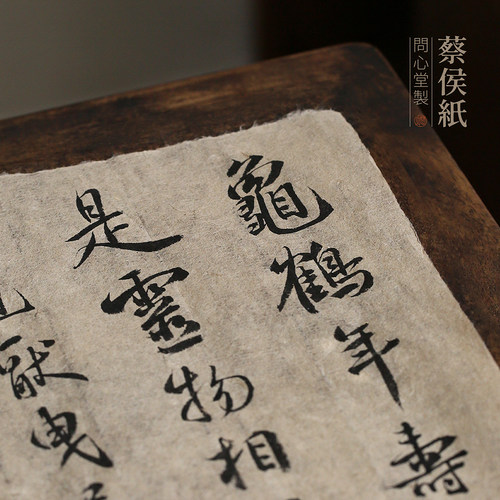 蔡侯紙
問心堂製
龜鶴年壽
是靈物相
厭曳